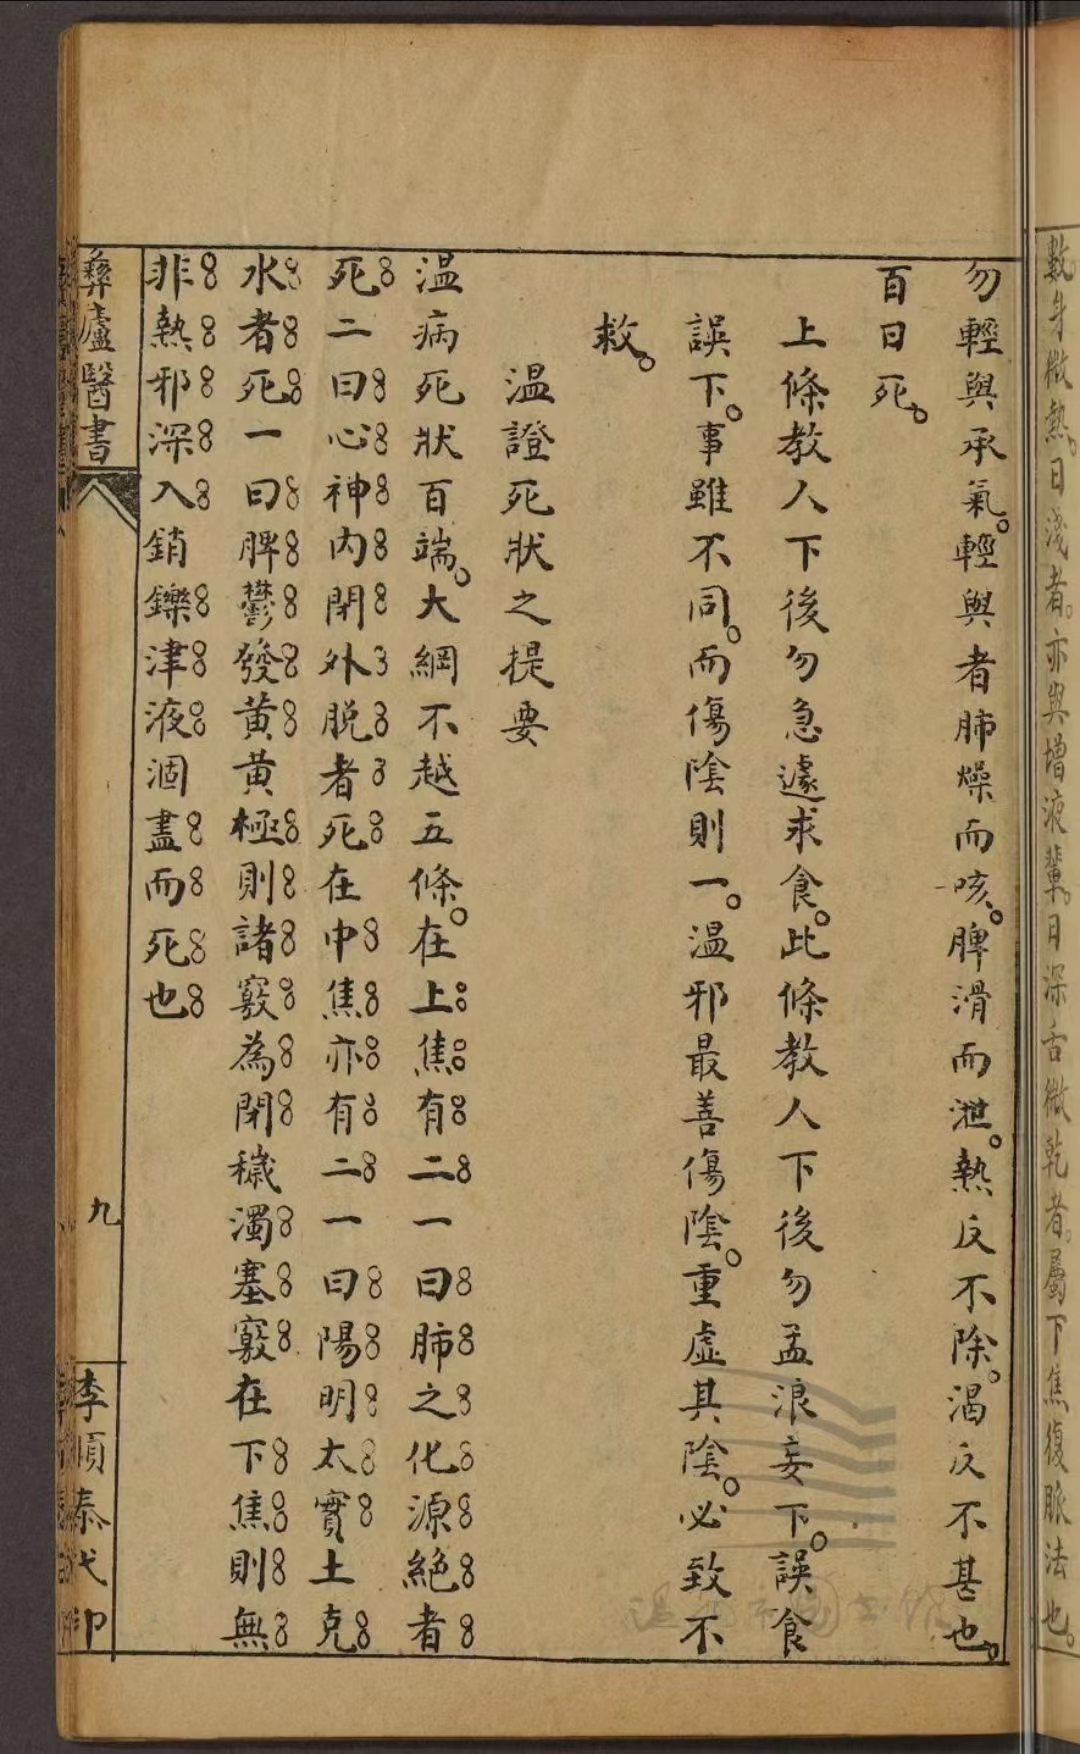 數身微熱。日淺者。亦與增液輩。日深舌微乾者。屬下焦復脈法也。
勿輕與承氣。輕與者肺燥而咳。脾滑而泄。熱反不除。渴反不甚也。
百日死。
上條教人下後勿急遽求食。此條教人下後勿孟浪妄下。誤食
誤下。事雖不同。而傷陰則一。温邪最善傷陰。重虛其陰。必致不
救。
温證死狀之提要
温病死狀百端。大綱不越五條。在上焦有二一曰肺之化源絕者
死二曰心神内閉外脱者死在中焦亦有二一曰陽明太實土克
水者死一曰脾鬱發黄黄極則諸竅為閉穢濁塞竅在下焦則無
非熱邪深入銷鑠津液涸盡而死也
彝廬醫書
九
李順泰代印